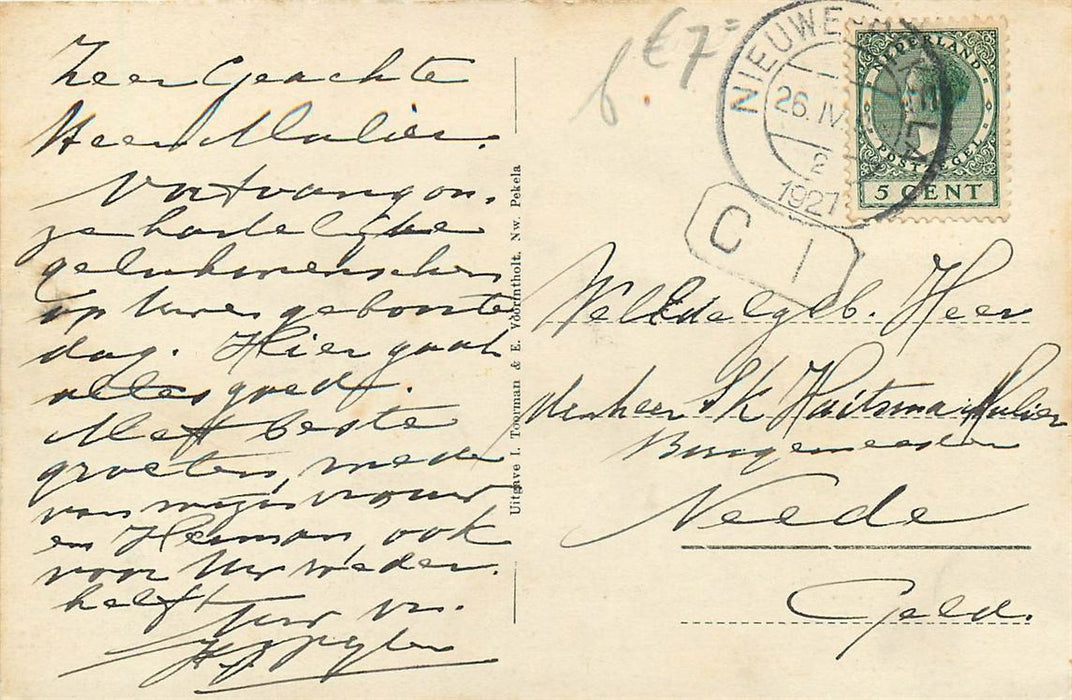 Zeer Geachte
Heer Mulier.
Ontvang on-
ze hartelijke
gelukwenschen
op Uwe geboorte
dag. Hier gaat
alles goed.
Met beste
groeten, mede
van mijn vrouw
en Herman, ook
voor Uw weder-
helft
Uw vr.
Uitgave I. Toorman & E. Voorintholt, Nw. Pekela
f. € 7=
NIEUWE-PEKELA
26. IV
2
1927
C I
NEDERLAND
POSTZEGEL
5 CENT
WelEdelgeb. Heer
den heer S K Huitsma Mulier
Burgemeester
Neede
Geld.